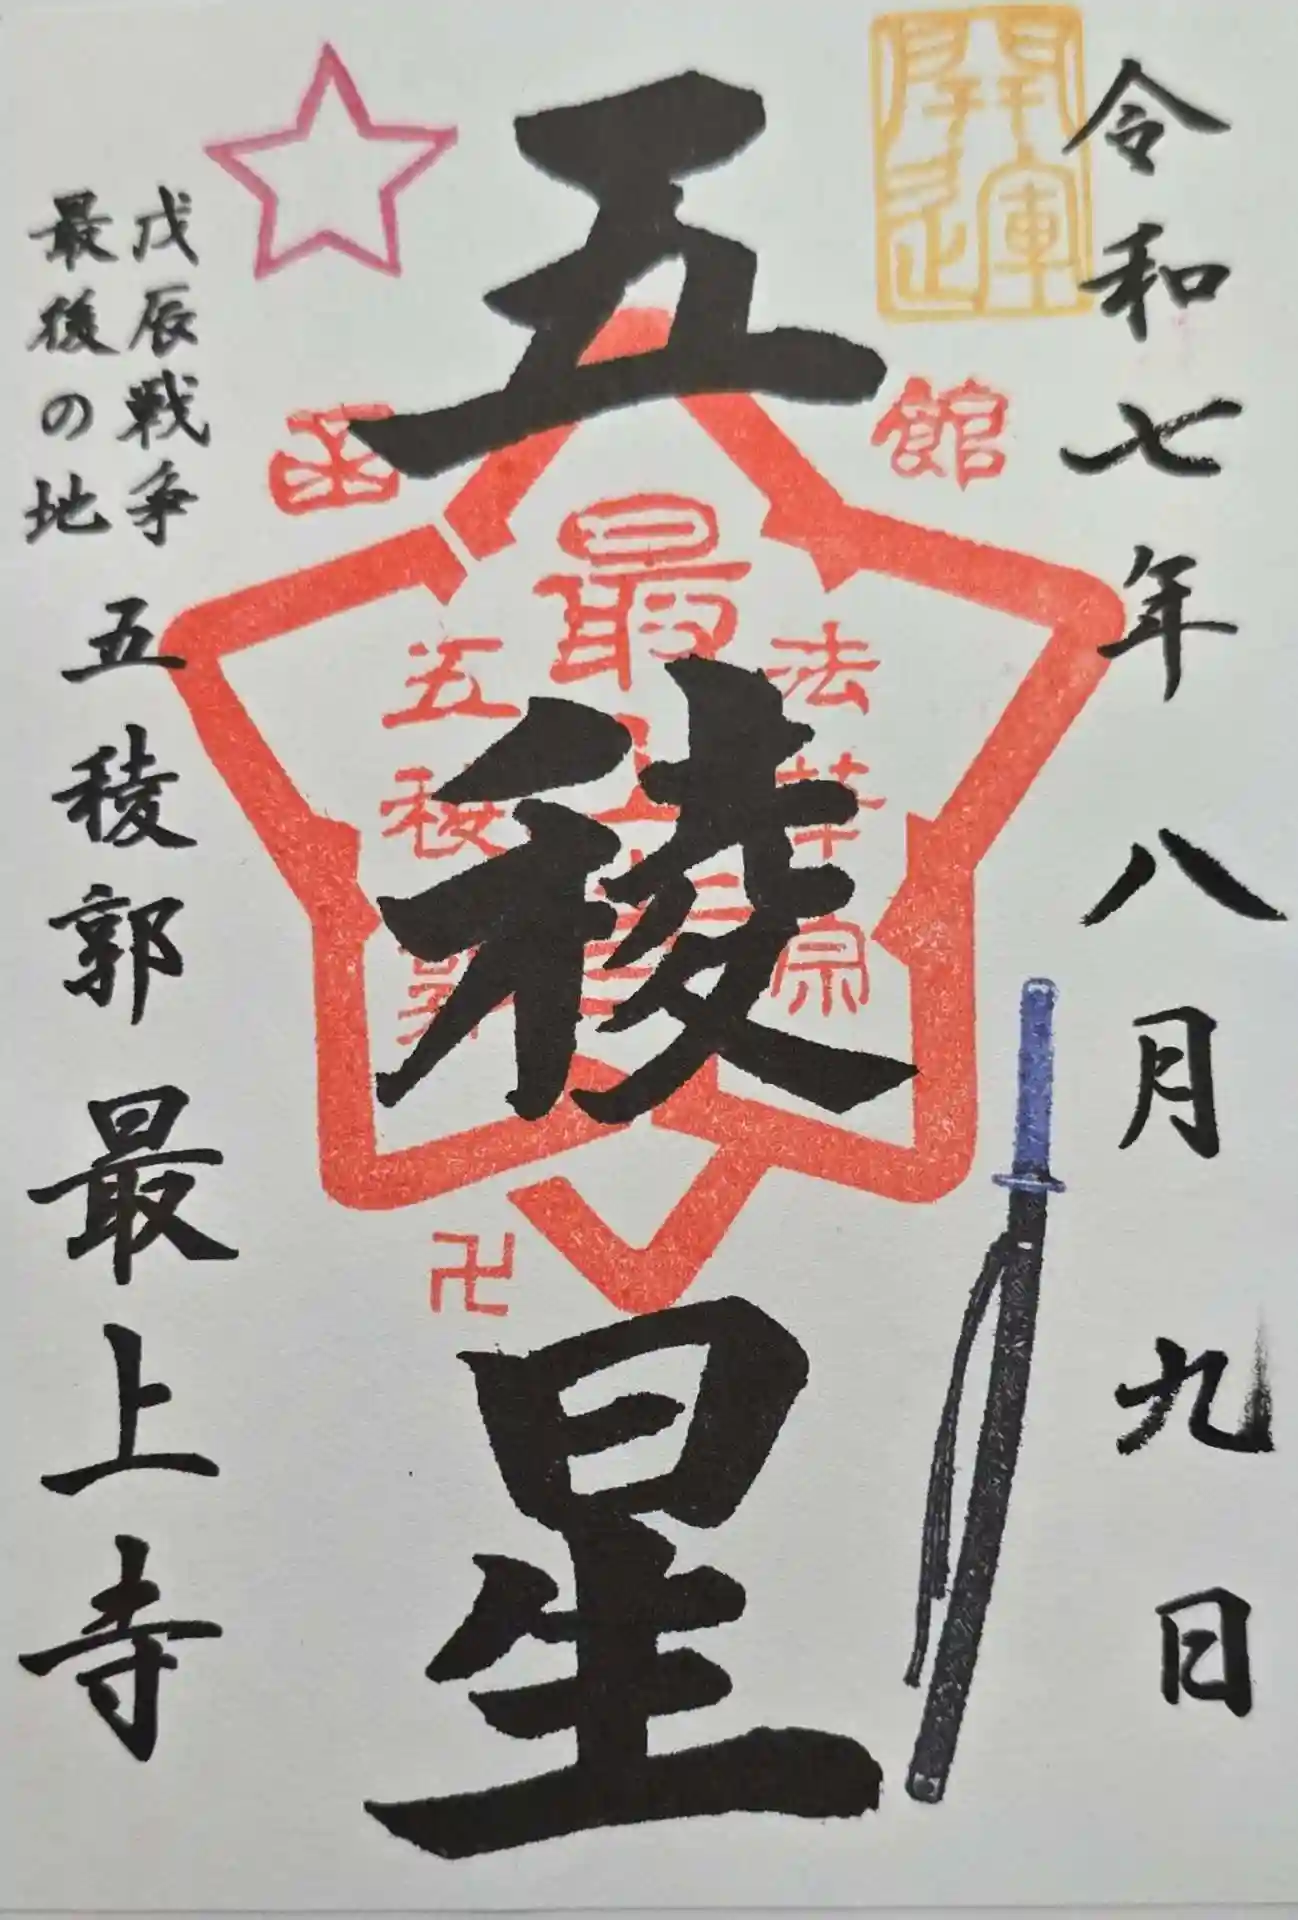 開運
令和七年八月九日
五稜星
函館
法華宗
最上寺
五稜郭
卍
戊辰戦争
最後の地
五稜郭最上寺